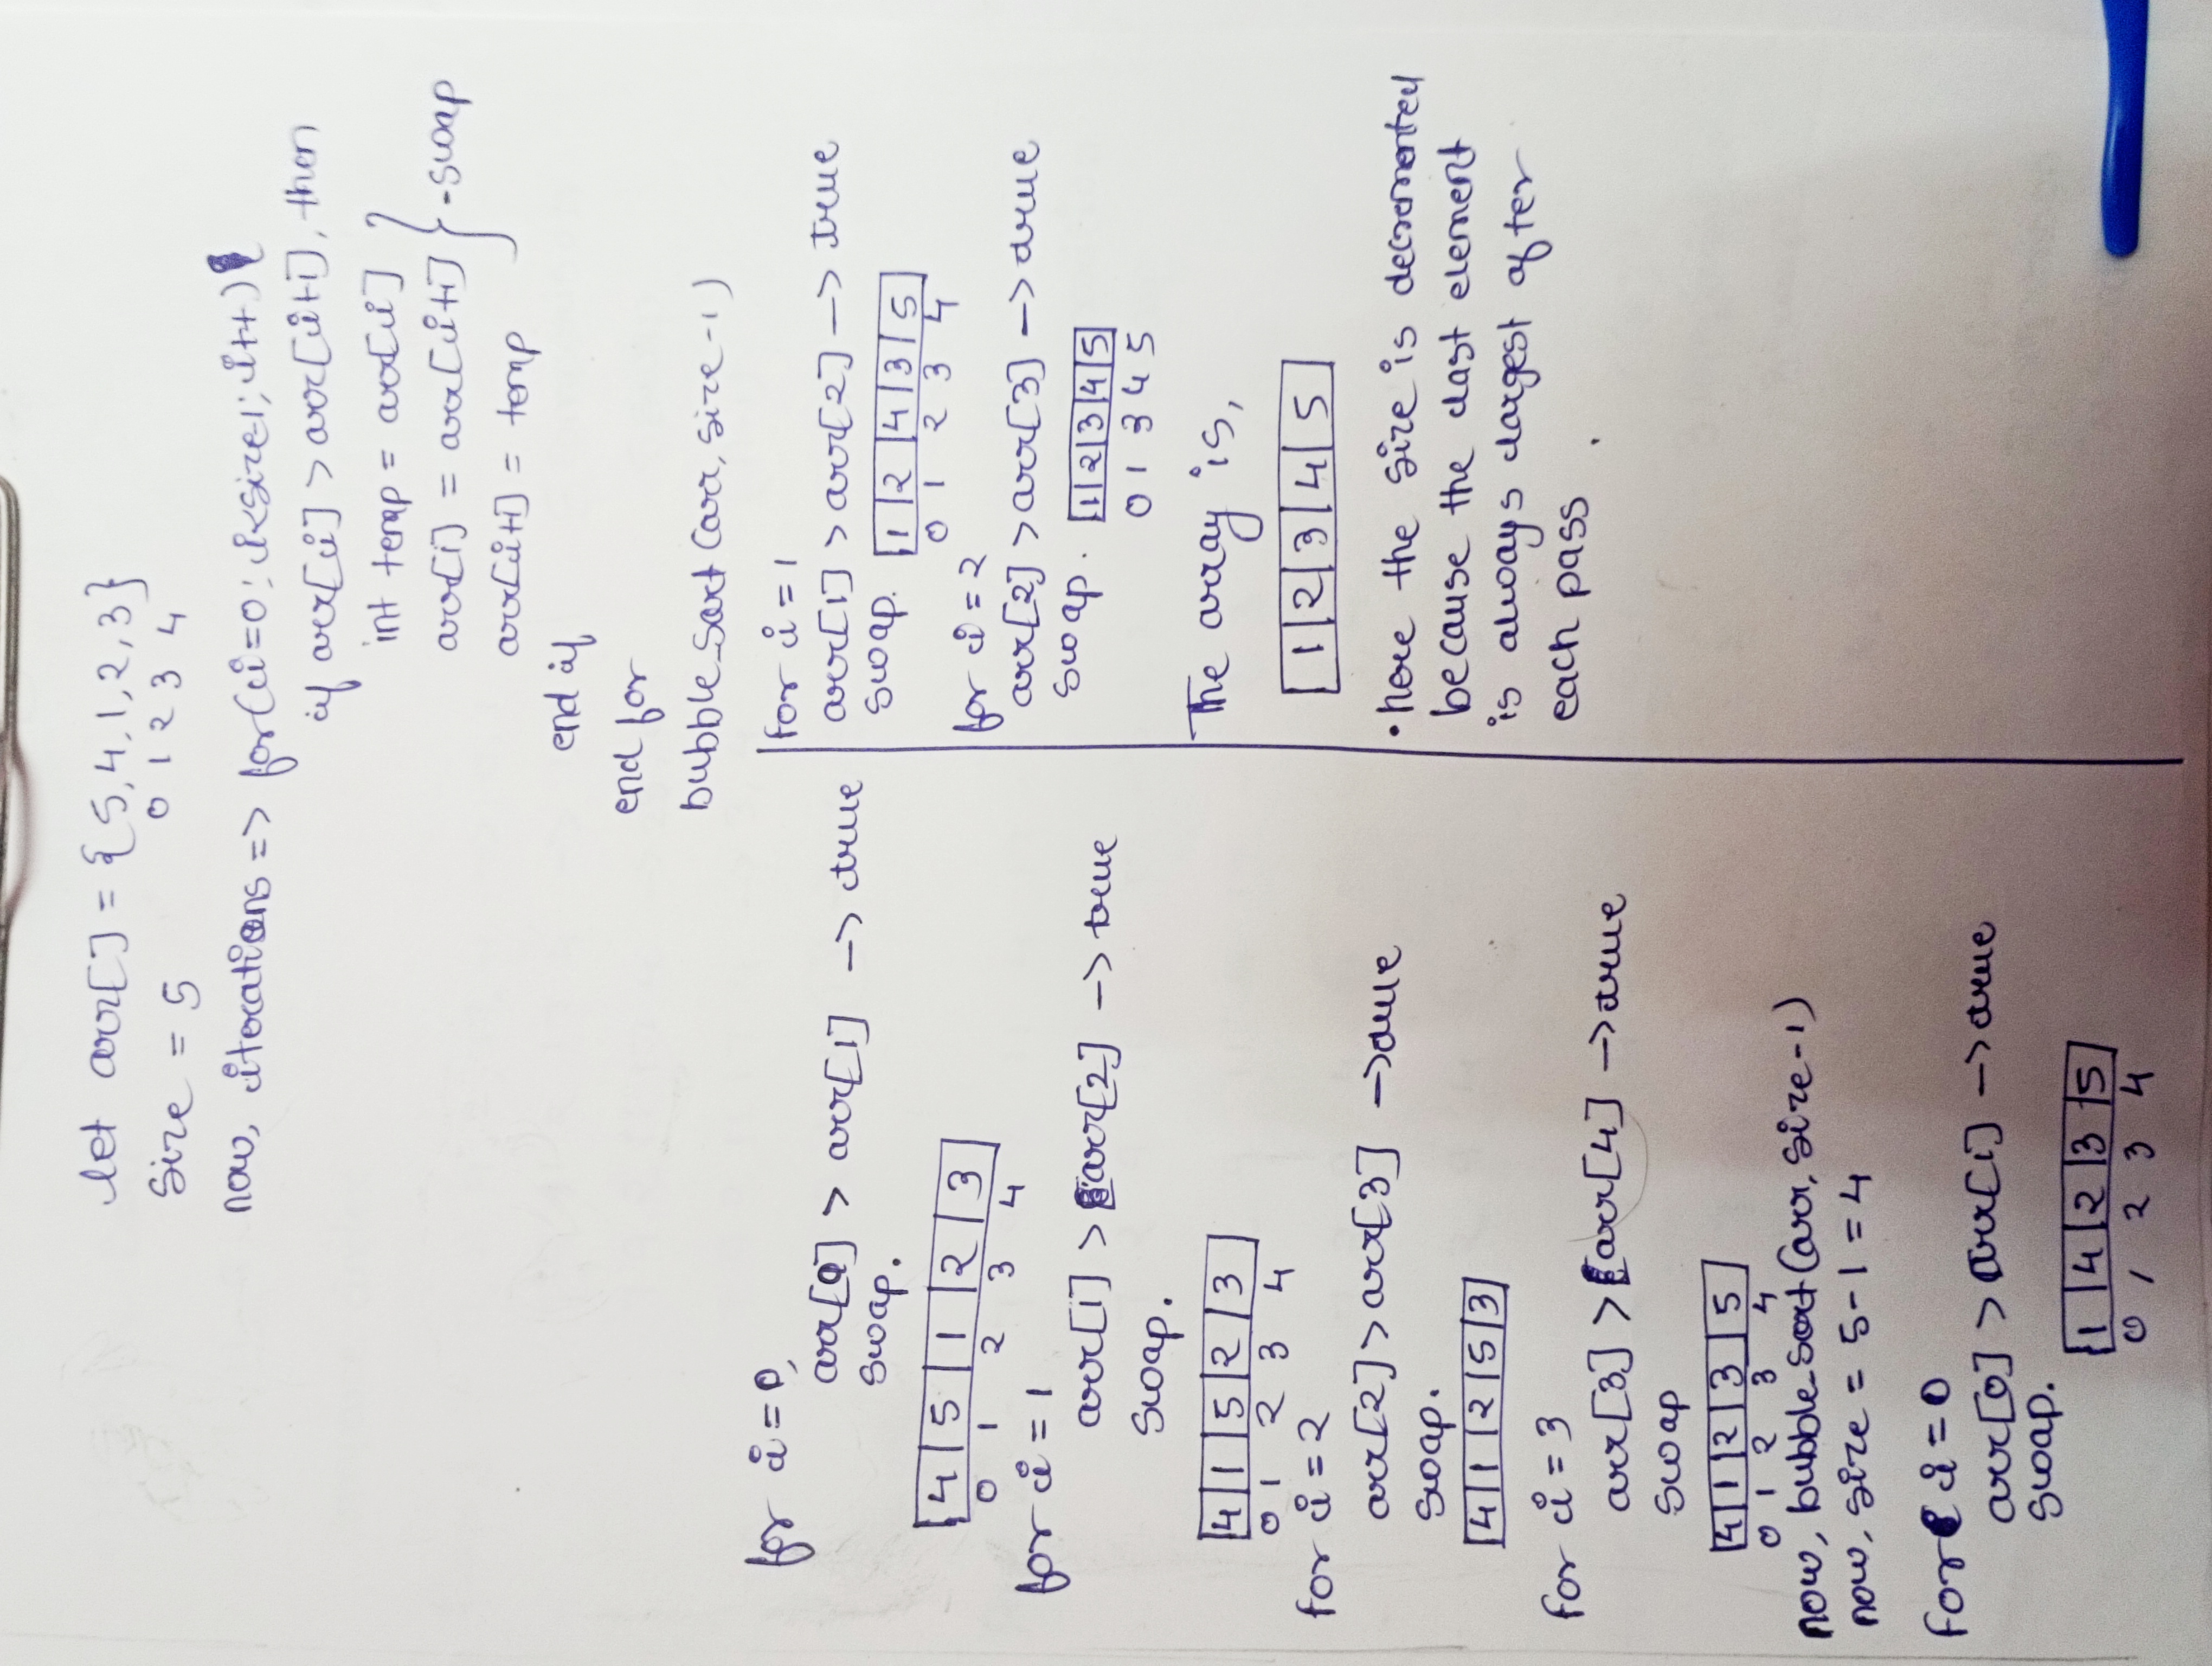 let arr[] = {5,4,1,2,3}
0 1 2 3 4
size = 5
now, iterations => for(i=0; i<size-1; i++)
if arr[i] > arr[i+1], then
int temp = arr[i]
arr[i] = arr[i+1] } -swap
arr[i+1] = temp
end if
end for
bubble_sort (arr, size-1)
for i = 0,
arr[0] > arr[1] -> true
swap.
4 | 5 | 1 | 2 | 3
0 1 2 3 4
for i = 1
arr[1] > arr[2] -> true
swap.
4 | 1 | 5 | 2 | 3
0 1 2 3 4
for i = 2
arr[2] > arr[3] -> true
swap.
4 | 1 | 2 | 5 | 3
for i = 3
arr[3] > arr[4] -> true
swap
4 | 1 | 2 | 3 | 5
0 1 2 3 4
now, bubble_sort (arr, size-1)
now, size = 5-1 = 4
for i = 0
arr[0] > arr[1] -> true
swap.
1 | 4 | 2 | 3 | 5
0 1 2 3 4
for i = 1
arr[1] > arr[2] -> true
swap. 1 | 2 | 4 | 3 | 5
0 1 2 3 4
for i = 2
arr[2] > arr[3] -> true
swap. 1 | 2 | 3 | 4 | 5
0 1 3 4 5
The array is,
1 | 2 | 3 | 4 | 5
• here the size is decremented
because the last element
is always largest after
each pass.